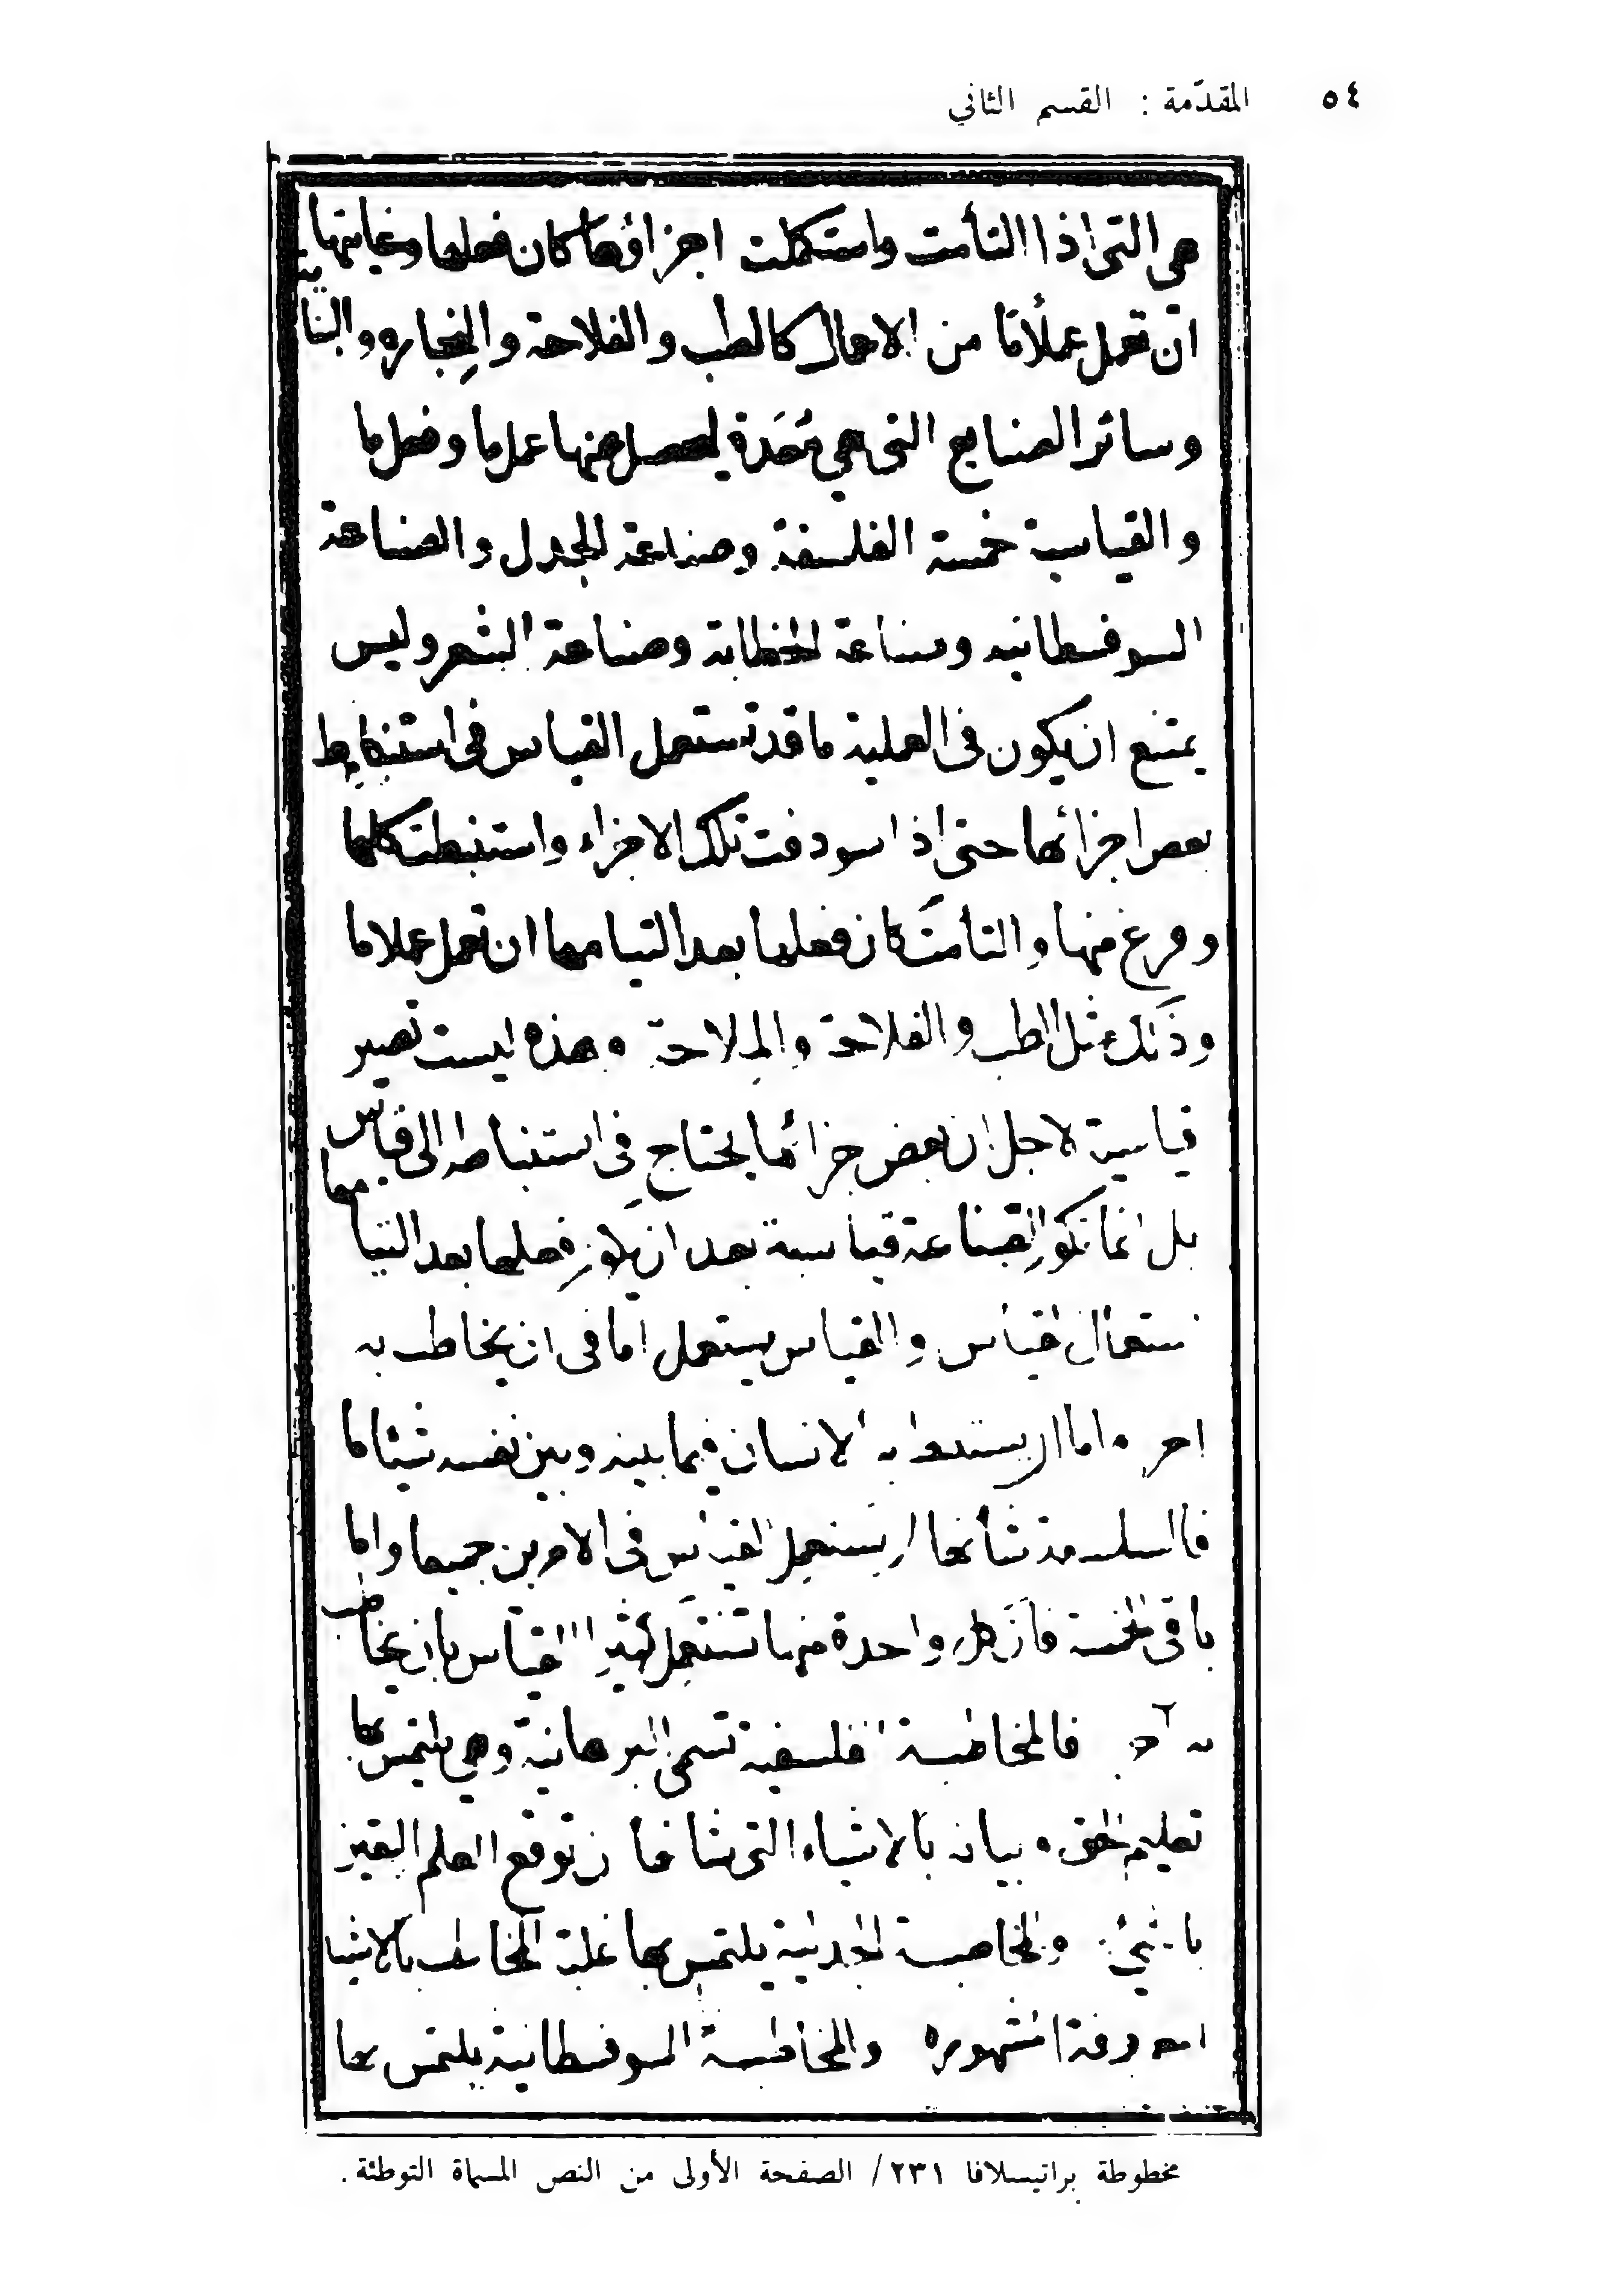 ٥٤ المقدّمة : القسم الثاني
هي التي اذا التأمت واستكملت اجزاؤها كان فعلها وغايتها
ان تعمل عملاً ما من الاعمال كالطب والفلاحة والنجاره والبنائية
وسائر الصنايع التي هي مُعَدة ليحصل عنها عمل ما وفعل ما
والقياسية خمسة الفلسفة وصناعة الجدل والصناعة
السوفسطائيه وصناعة الخطابة وصناعة الشعر وليس
يمتنع ان يكون في العملية ما قد تستعمل القياس في استنباط
بعض اجزائها حتى اذا استوفت تلك الاجزاء واستنبطت كلها
وفرغ منها والتأمت كان فعلها بعد التيامها ان تعمل عملا ما
وذلك مثل الطب والفلاحة والملاحة وهذه ليست تصير
قياسية لاجل ان بعض جزائها يحتاج في استنباطه الى قياس
بل انما تكون الصناعة قياسية بعد ان يكون فعلها بعد التيامها
ستعمال القياس والقياس يستعمل اما في ان يخاطب به
اخر واما ان يستنبط به الانسان فيما بينه وبين نفسه شيئا ما
فالفلسفه من شأنها ان يستعمل القياس في الامرين جميعا واما
باقي الخمسة فان كل واحدة منها تستعمل القياس بان يخاطب
به آخر فالمخاطبة الفلسفية تسمى البرهانية وهي يلتمس بها
تعليم الحق وبيانه بالاشياء التي شانها ان توقع العلم اليقين
بالشيء والمخاطبة الجدلية يلتمس بها غلبة المخاطب بالاشيا
المعروفة المشهوره والمخاطبة السوفسطائية يلتمس بها
مخطوطة براتيسلافا ٢٣١/ الصفحة الأولى من النص المسماة التوطئة .